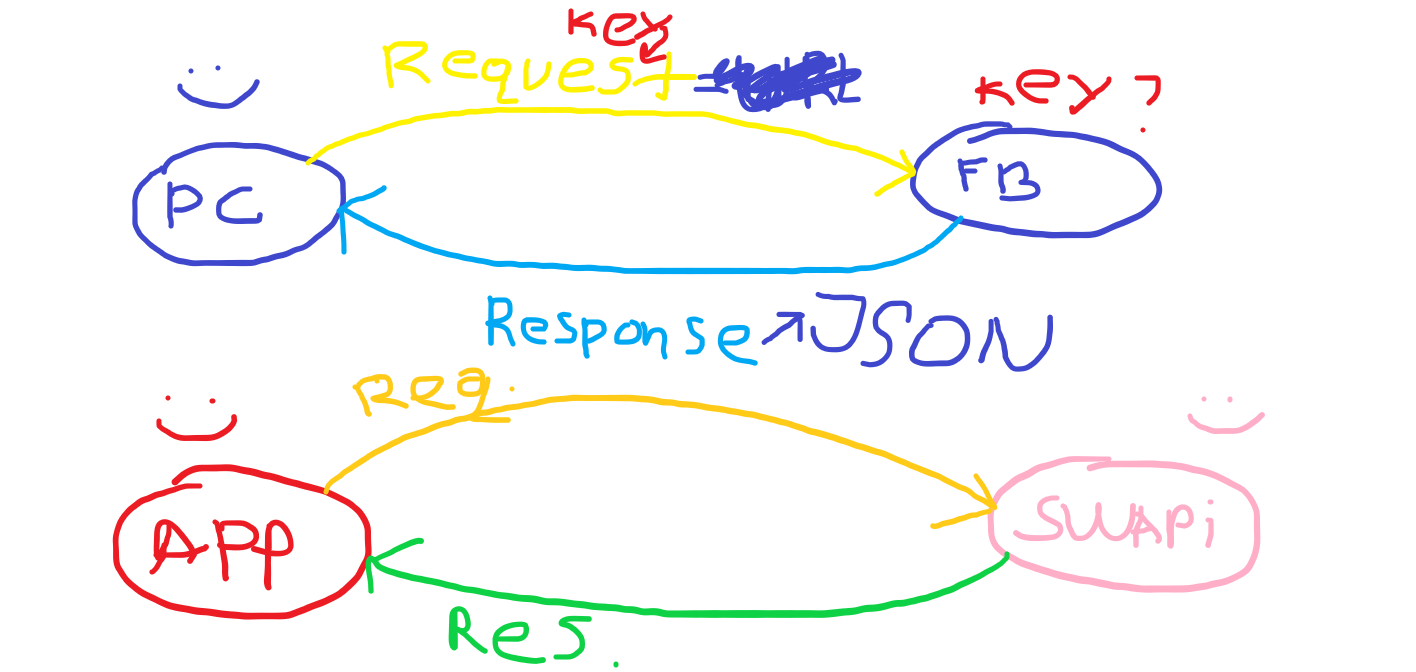 key
Request
key?
PC
FB
Response JSON
Req.
APP
SWAPi
Res.